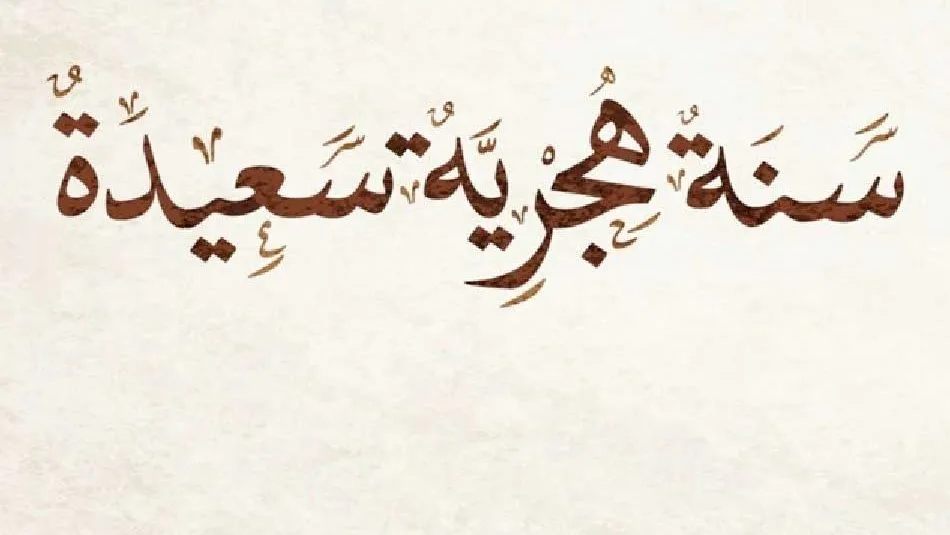 سَنَةٌ هُجْرِيَّةٌ سَعِيدَةٌ